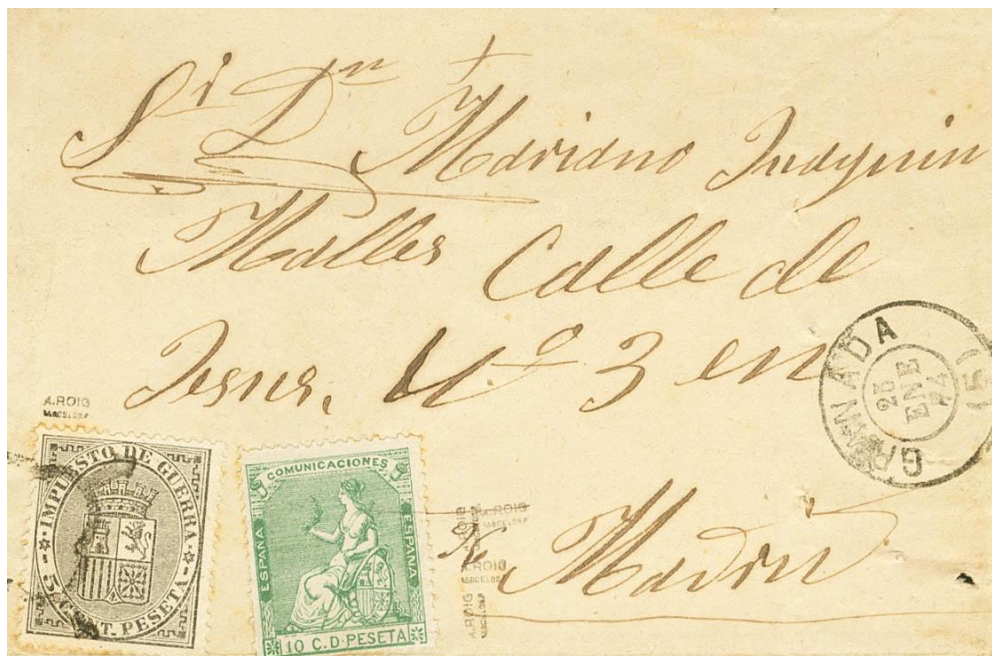 Sr Dn Mariano Juaquin
Malles Calle de
Jesus. Nº 3 en
Madrid
GRANADA
25
ENE
74
(5)
A.ROIG
BARCELONA
IMPUESTO DE GUERRA
5 CENT. PESETA
COMUNICACIONES
ESPAÑA
ESPAÑA
10 C.D PESETA
A.ROIG
BARCELONA
A.ROIG
BARCELONA
A.ROIG
BARCELONA